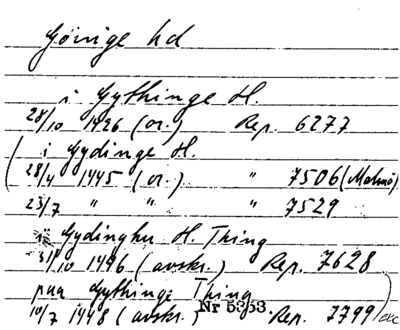 Göinge hd
i Gythinge H.
28/10 1426 (or.) Rep. 6277
( i Gydinge H.
28/4 1445 (or.) " 7506 (Malmö)
23/7 " " " 7529
i Gydinghu H. Thing
31/10 1446 (avskr.) Rep. 7628
paa Gythinge Thing
10/7 1448 (avskr.) Rep. 7799
Nr 53/53